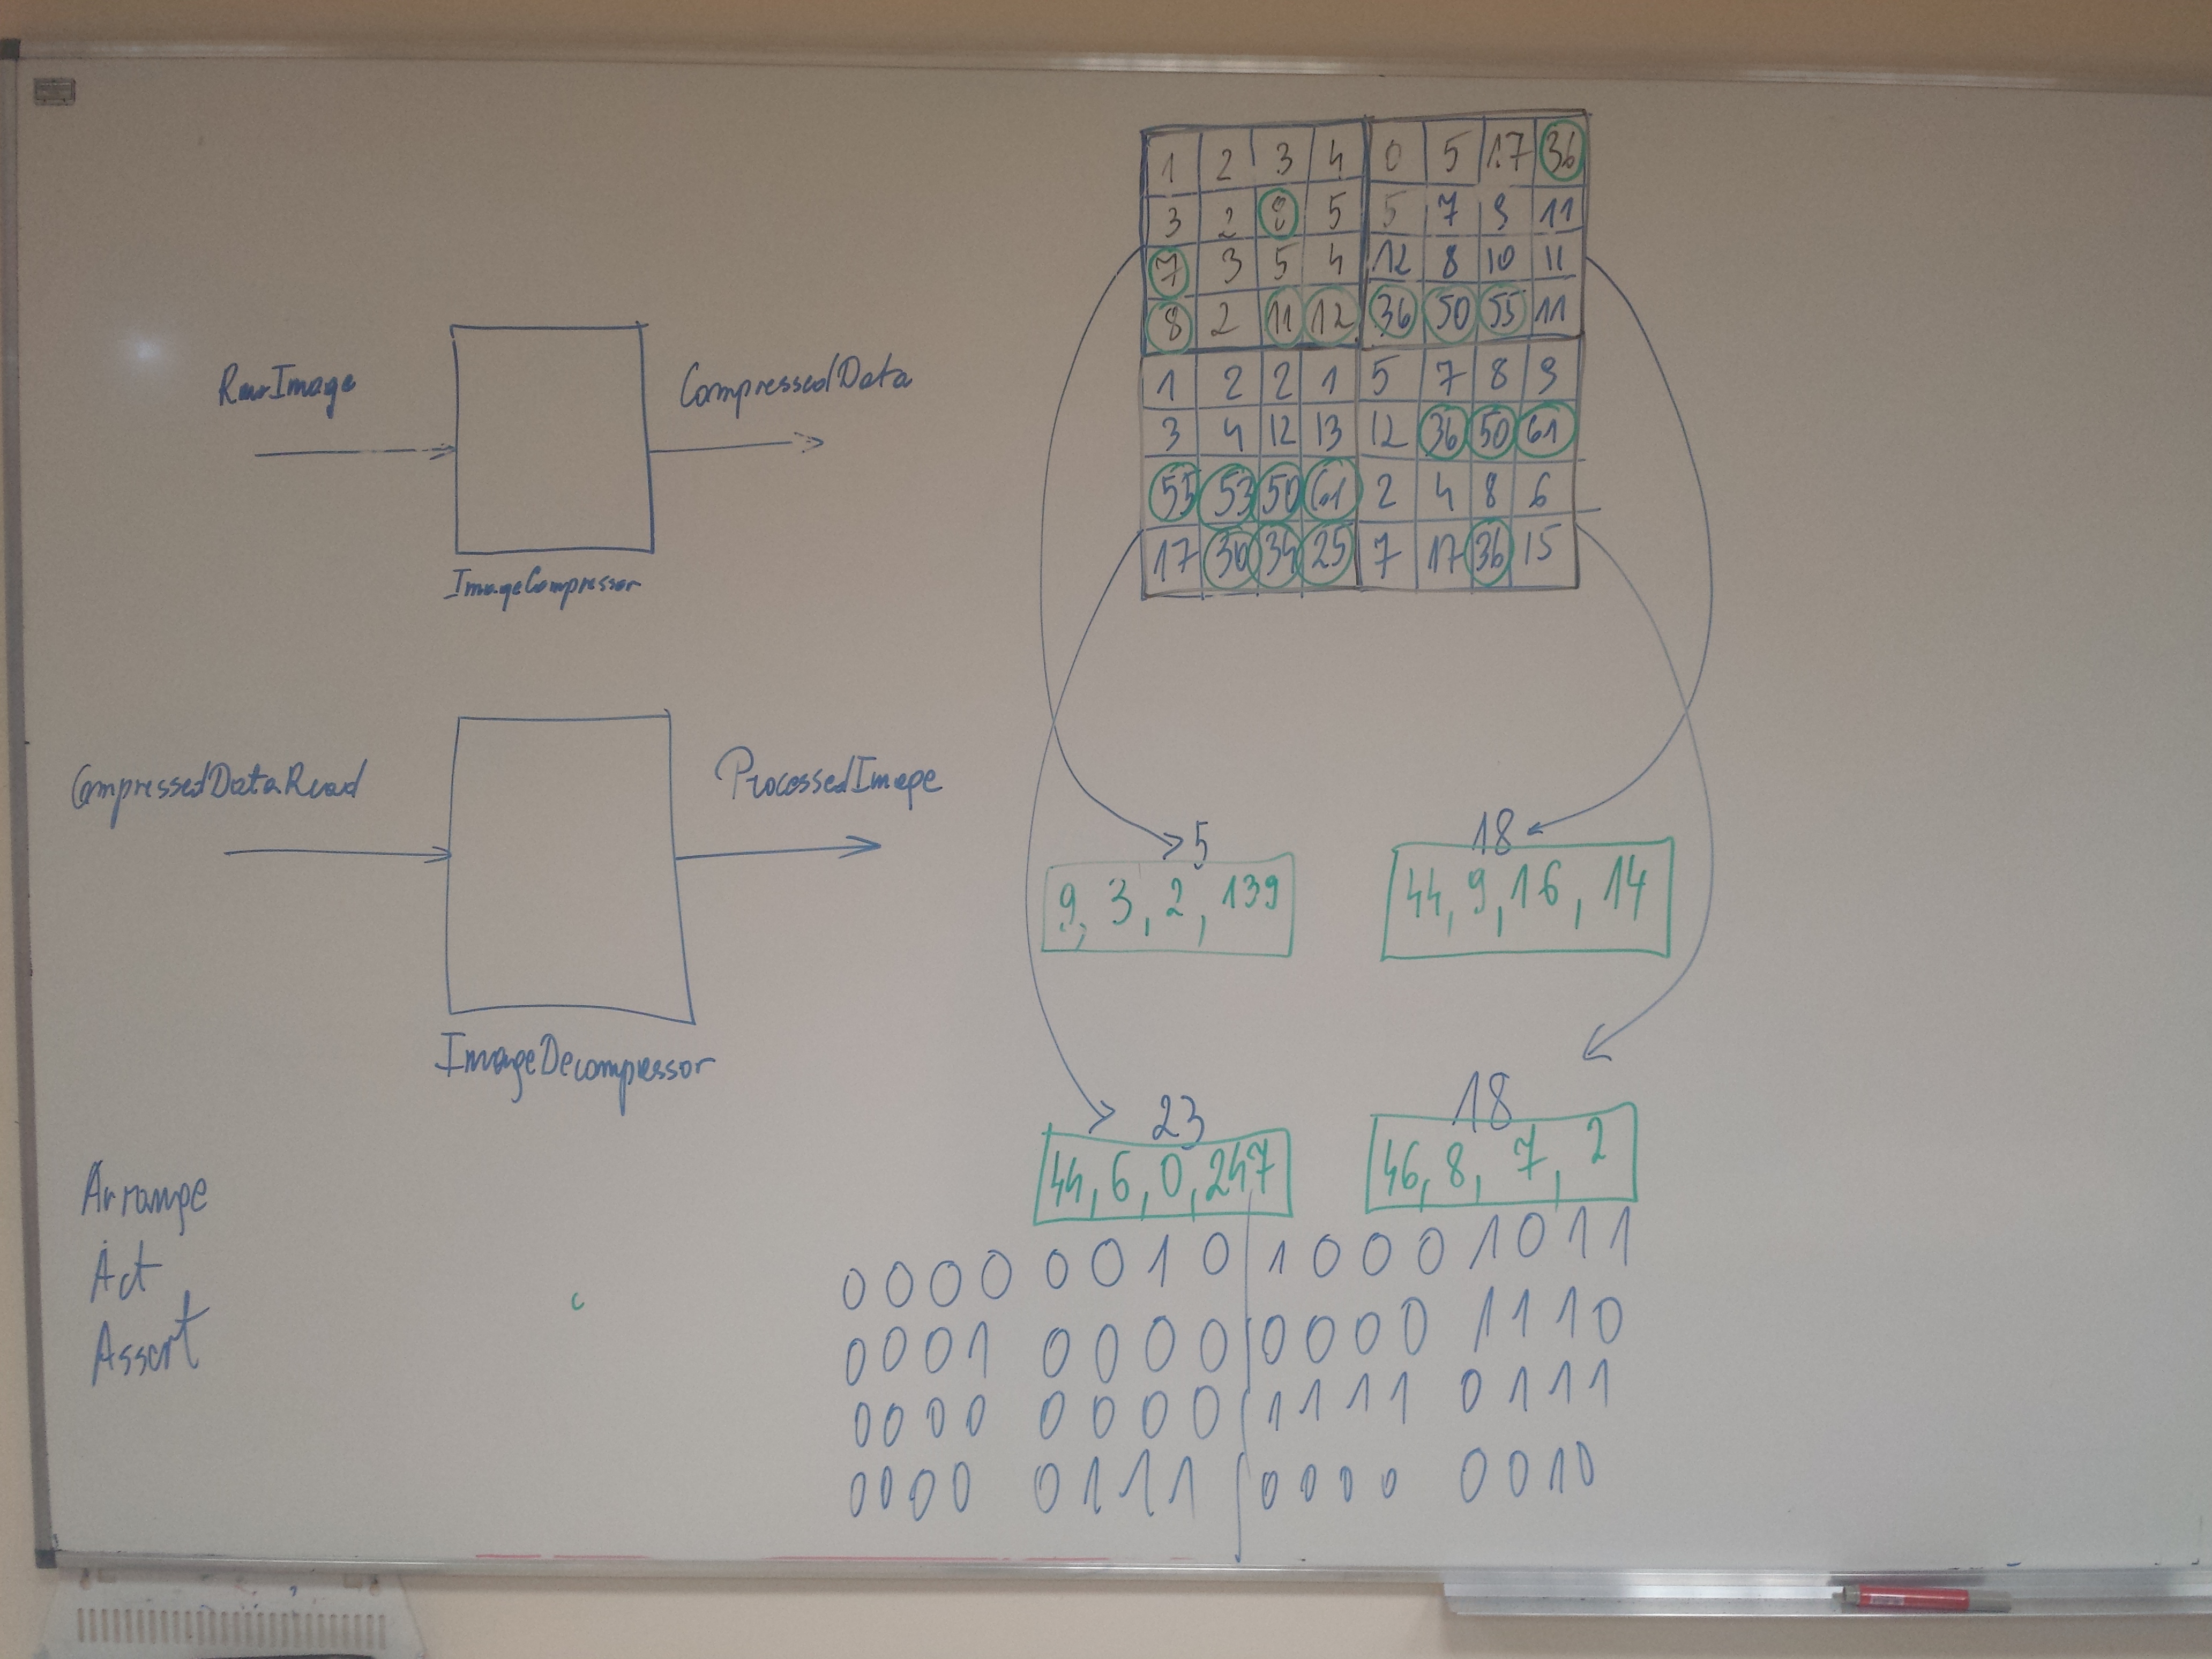 RawImage
CompressedData
ImageCompressor
CompressedDataRead
ProcessedImage
ImageDecompressor
Arrange
Act
Assert
1 2 3 4 0 5 17 36
3 2 8 5 5 7 9 11
7 3 5 4 12 8 10 11
8 2 11 12 36 50 55 11
1 2 2 1 5 7 8 9
3 4 12 13 12 36 50 61
55 53 50 61 2 4 8 6
17 36 34 25 7 17 36 15
5
9, 3, 2, 139
18
44, 9, 16, 14
23
44, 6, 0, 247
18
46, 8, 7, 2
0000 0010 1000 1011
0001 0000 0000 1110
0000 0000 1111 0111
0000 0111 0000 0010